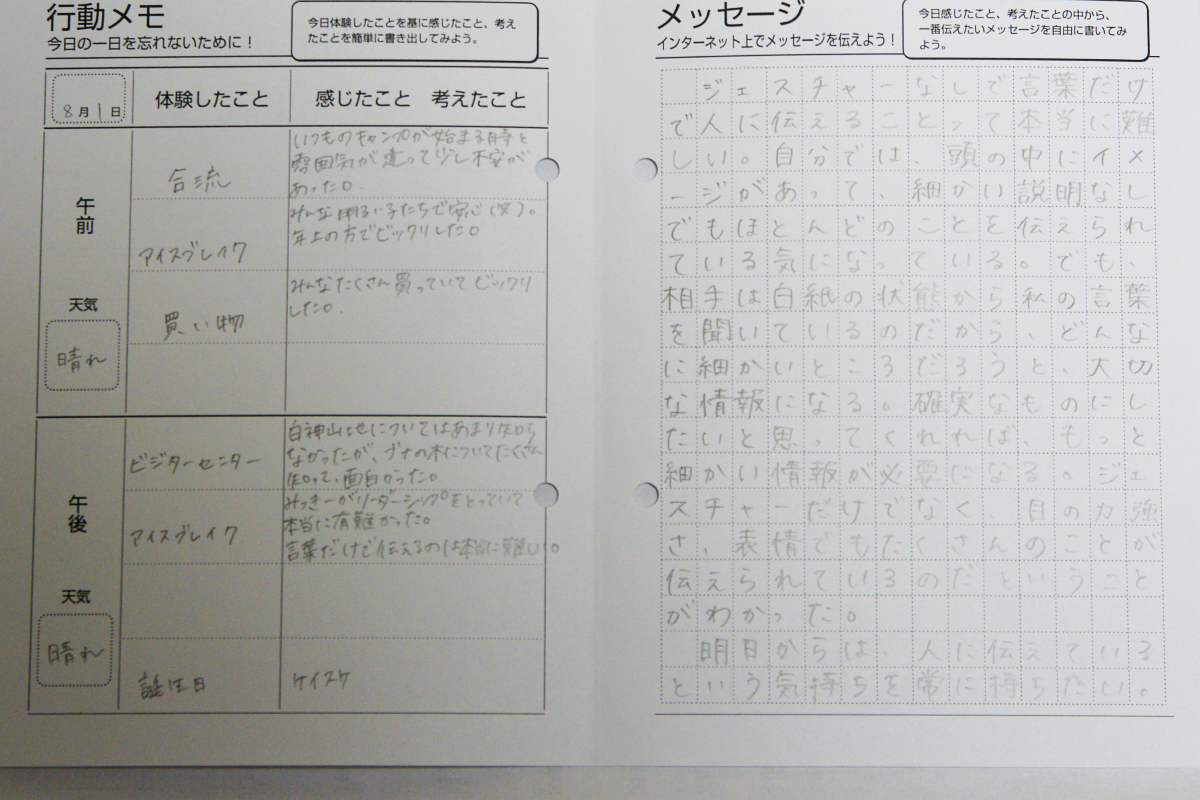 行動メモ
今日の一日を忘れないために！
今日体験したことを基に感じたこと、考え
たことを簡単に書き出してみよう。
8月1日
体験したこと
感じたこと 考えたこと
午前
天気
晴れ
合流
いつものキャンプが始まる時と
雰囲気が違って少し不安が
あった。
アイスブレイク
みんな明るい子たちで安心(笑)。
年上の方でビックリした。
買い物
みんなたくさん買っていてビックリ
した。
午後
天気
晴れ
ビジターセンター
白神山地についてはあまり知ら
なかったが、ブナの木についてたくさん
知って、面白かった。
アイスブレイク
みっきーがリーダーシップをとっていて
本当に有難かった。
言葉だけで伝えるのは本当に難しい。
誕生日
ケイスケ
メッセージ
インターネット上でメッセージを伝えよう！
今日感じたこと、考えたことの中から、
一番伝えたいメッセージを自由に書いてみ
よう。
ジェスチャーなしで言葉だけ
で人に伝えることって本当に難
しい。自分では、頭の中にイメ
ージがあって、細かい説明なし
でもほとんどのことを伝えられ
ている気になっている。でも、
相手は白紙の状態から私の言葉
を聞いているのだから、どんな
に細かいところだろうと、大切
な情報になる。確実なものにし
たいと思ってくれれば、もっと
細かい情報が必要になる。ジェ
スチャーだけでなく、目の力強
さ、表情でもたくさんのことが
伝えられているのだということ
がわかった。
明日からは、人に伝えている
という気持ちを常に持ちたい。